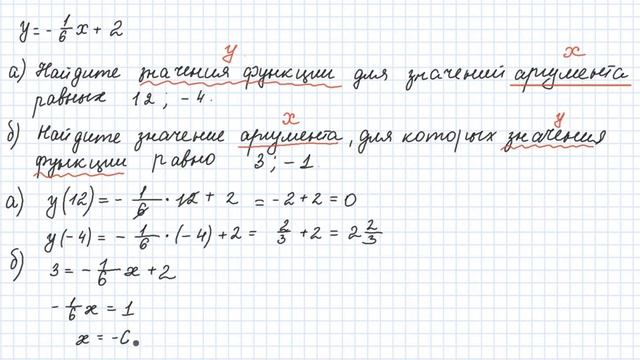 y = - 1/6 x + 2
y x
а) Найдите значения функции для значений аргумента
равных 12 ; -4.
x y
б) Найдите значение аргумента, для которых значения
функции равно 3 ; -1
а) y(12) = - 1/6 · 12 + 2 = -2 + 2 = 0
y(-4) = - 1/6 · (-4) + 2 = 2/3 + 2 = 2 2/3
б) 3 = - 1/6 x + 2
- 1/6 x = 1
x = -6